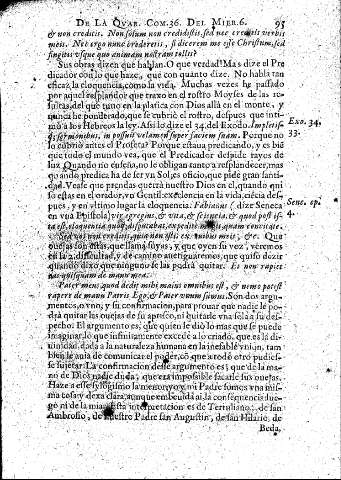 DE LA QVAR. COM. 36. DEL MIER. 6. 95
& non creditis. Non solum non credidistis, sed nec creditis verbis
meis. Nec ergo nunc crederetis, si dicerem me esse Christum, sed
singitis vsque quo animam nostram tollis?
Sus obras dizen que hablan. O que verdad! Mas dize el Pre
dicador con lo que haze, que con quanto dize. No habla tan
eficaz la eloquencia, como la vida. Muchas vezes he passado
por aquel resplandor que traxo en el rostro Moyses de las
sultas, del que tuno en la platica con Dios allà en el monte, y
nunca he ponderado, que le cubriò el rostro, despues que inti-
mò a los Hebreos la ley. Assi lo dize el 34. del Exodo. Impletisq́
q; sermonibus, in posuit velamen super faciem suam. Porque no
lo cubriò antes el Profeta? Porque estaua predicando, y es biẽ
que todo el mundo vea, que el Predicador despide rayos de
luz. Quando no enseña, no le obligan tanto a resplandecer, mas
quando predica ha de ser vn Sol, es oficio, que pide gran santi-
dad. Vease que prendas querrà nuestro Dios en el, quando qui
so estas en el orador, vn Gentil: excelencia en la vida, ciẽcia des-
pues, y en vltimo lugar la eloquencia. Fabiano (dize Seneca
en vna Epistola) vir egregius, & vita, & scientia, & quod post is-
ta est, eloquentia quoq; disputabat, expeditè magis quam concitatè.
Sed vos non creditis, quia non estis ex ouibus meis, &c. Que
ouejas son estas, que llama suyas, y que oyen su voz, veremos
en la 2. dificultad, y de camino aueriguaremos, que quiso dezir
quando dixo que ninguno se las podrà quitar. Et non rapiet
eas quisquam de manu mea.
Pater meus quod dedit mihi maius omnibus est, & nemo potest
rapere de manu Patris. Ego, & Pater vnum sumus. Son dos argu-
mentos, o vno, y su confirmacion, para prouar que nadie le po-
drà quitar las ouejas de su aprisco, ni quitarle vna sola a su des-
pecho. El argumento es; que quien le diò lo mas que se puede
imaginar, lo que infinitamente excede a lo criado, que es la di-
uinidad, dada a la naturaleza humana en la inefable vnion, tam
bien le auia de comunicar el poder, cõ que a todo otro pudies-
se sujetar. La confirmacion deste argumento es; que de la ma-
no de Dios nadie duda, que era impossible sacarle sus ouejas.
Haze a este sylogismo la menor, yo y mi Padre somos vna mis-
ma cosa, y dexa clara, aunque embeuida aì la consequencia lue-
go ni de la mia. Esta interpretacion es de Tertuliano, de san
Ambrosio, de nuestro Padre san Augustin, de san Hilario, de
Beda,
Exo. 34.
33.
Senec. ep.
4.